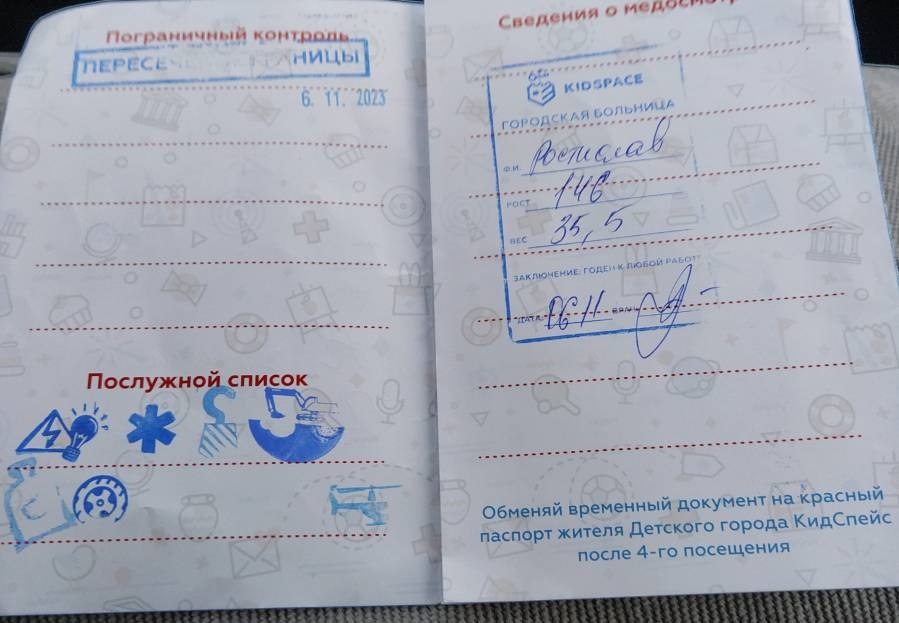 Пограничный контроль
ПЕРЕСЕЧЕНИЕ ГРАНИЦЫ
6. 11. 2023
Послужной список
Сведения о медосмотр
KIDSPACE
ГОРОДСКАЯ БОЛЬНИЦА
Ф.И. Ростислав
РОСТ 146
ВЕС 35,5
ЗАКЛЮЧЕНИЕ: ГОДЕН К ЛЮБОЙ РАБОТ
ДАТА: 06 11 ВРАЧ
Обменяй временный документ на красный
паспорт жителя Детского города КидСпейс
после 4-го посещения